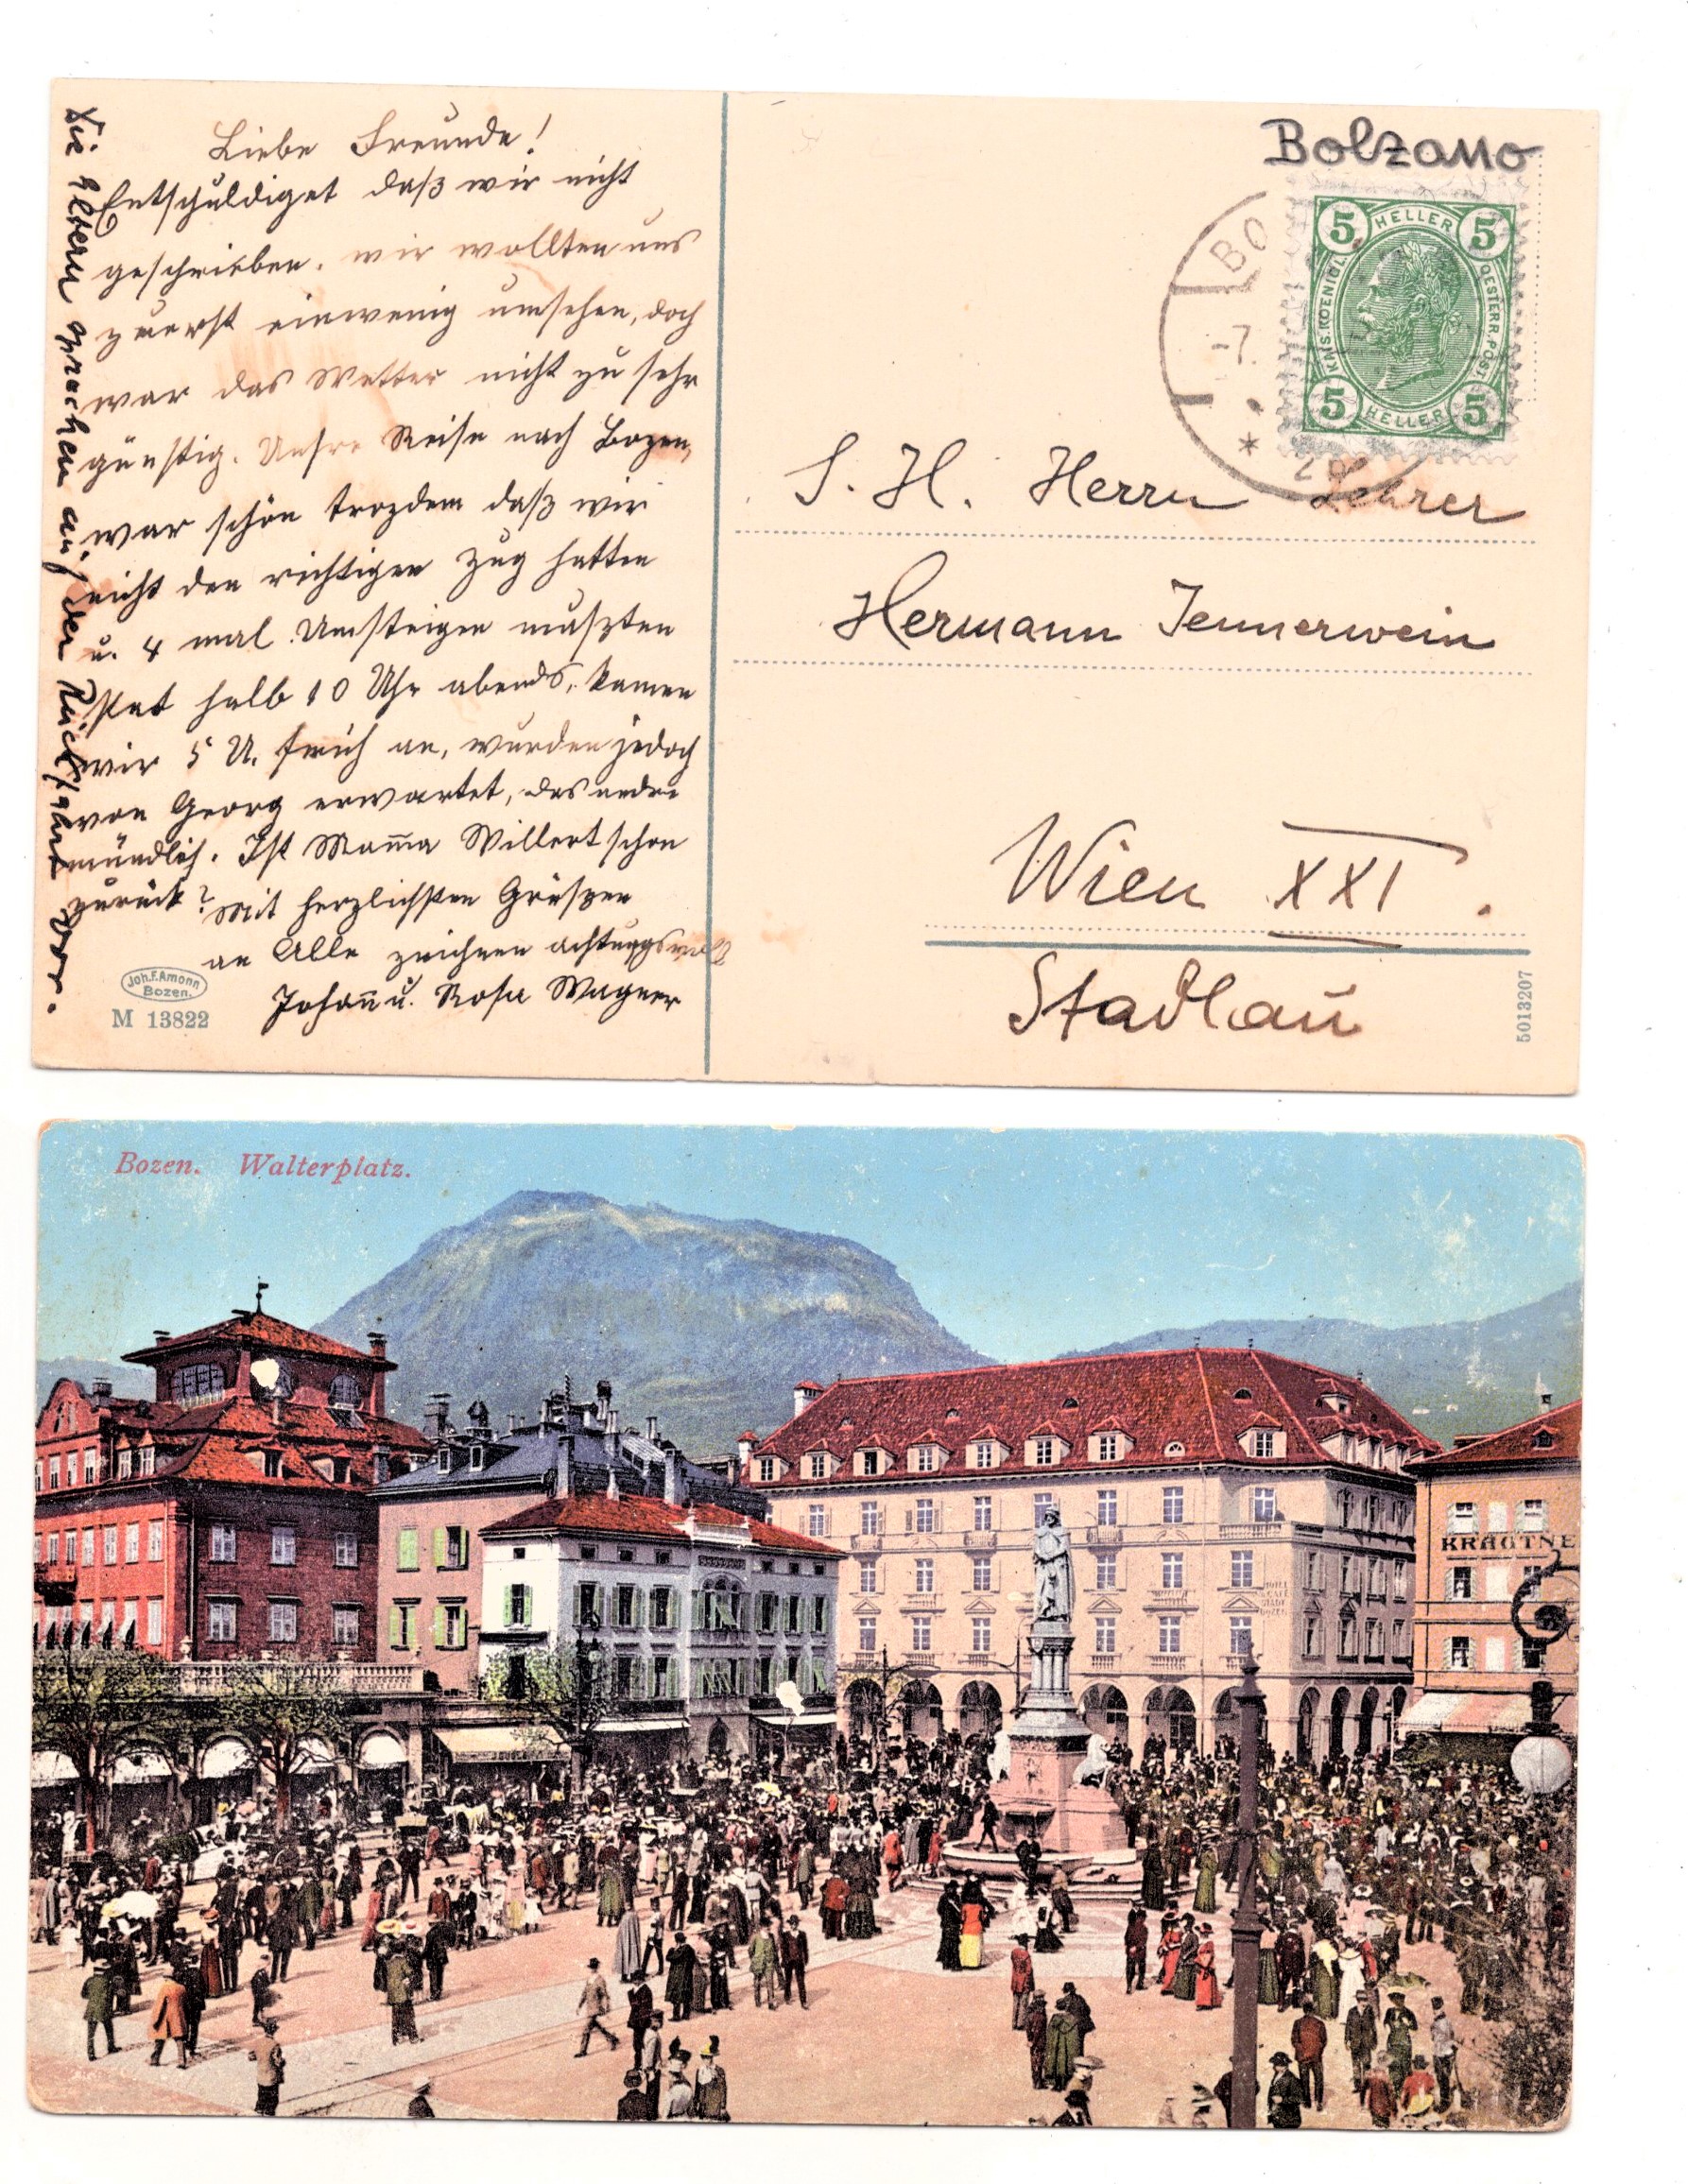 Liebe Freunde!
Entschuldiget daß wir nicht
geschrieben. wir wollten uns
zuerst einwenig umsehen, doch
war das Wetter nicht zu sehr
günstig. Unsre Reise nach Bozen,
war schön trozdem daß wir
nicht den richtigen Zug hatten
u. 4 mal Umsteigen muszten
halb 10 Uhr abends, kamen
wir 5 U. früh an, wurden jedoch
von Georg erwartet, das andre
mündlich. Ist Mam̄a Willert schon
zurück? Mit herzlichsten Grüszen
an Alle zeichnen achtungsvoll
Johan̄ u. Rosa Wagner
Die Eltern sprechen auf der Rückfahrt vor.
Joh.F.Amonn
Bozen.
M 13822
Bolzano
BO
-7.
5 HELLER 5
KAIS.KOENIGL.
OESTERR.POST
5 HELLER 5
S. H. Herrn Lehrer
Hermann Jennerwein
Wien XXI.
Stadlau
5013207
Bozen. Walterplatz.
KRAUTNE
HOTEL
STADT
BOZEN